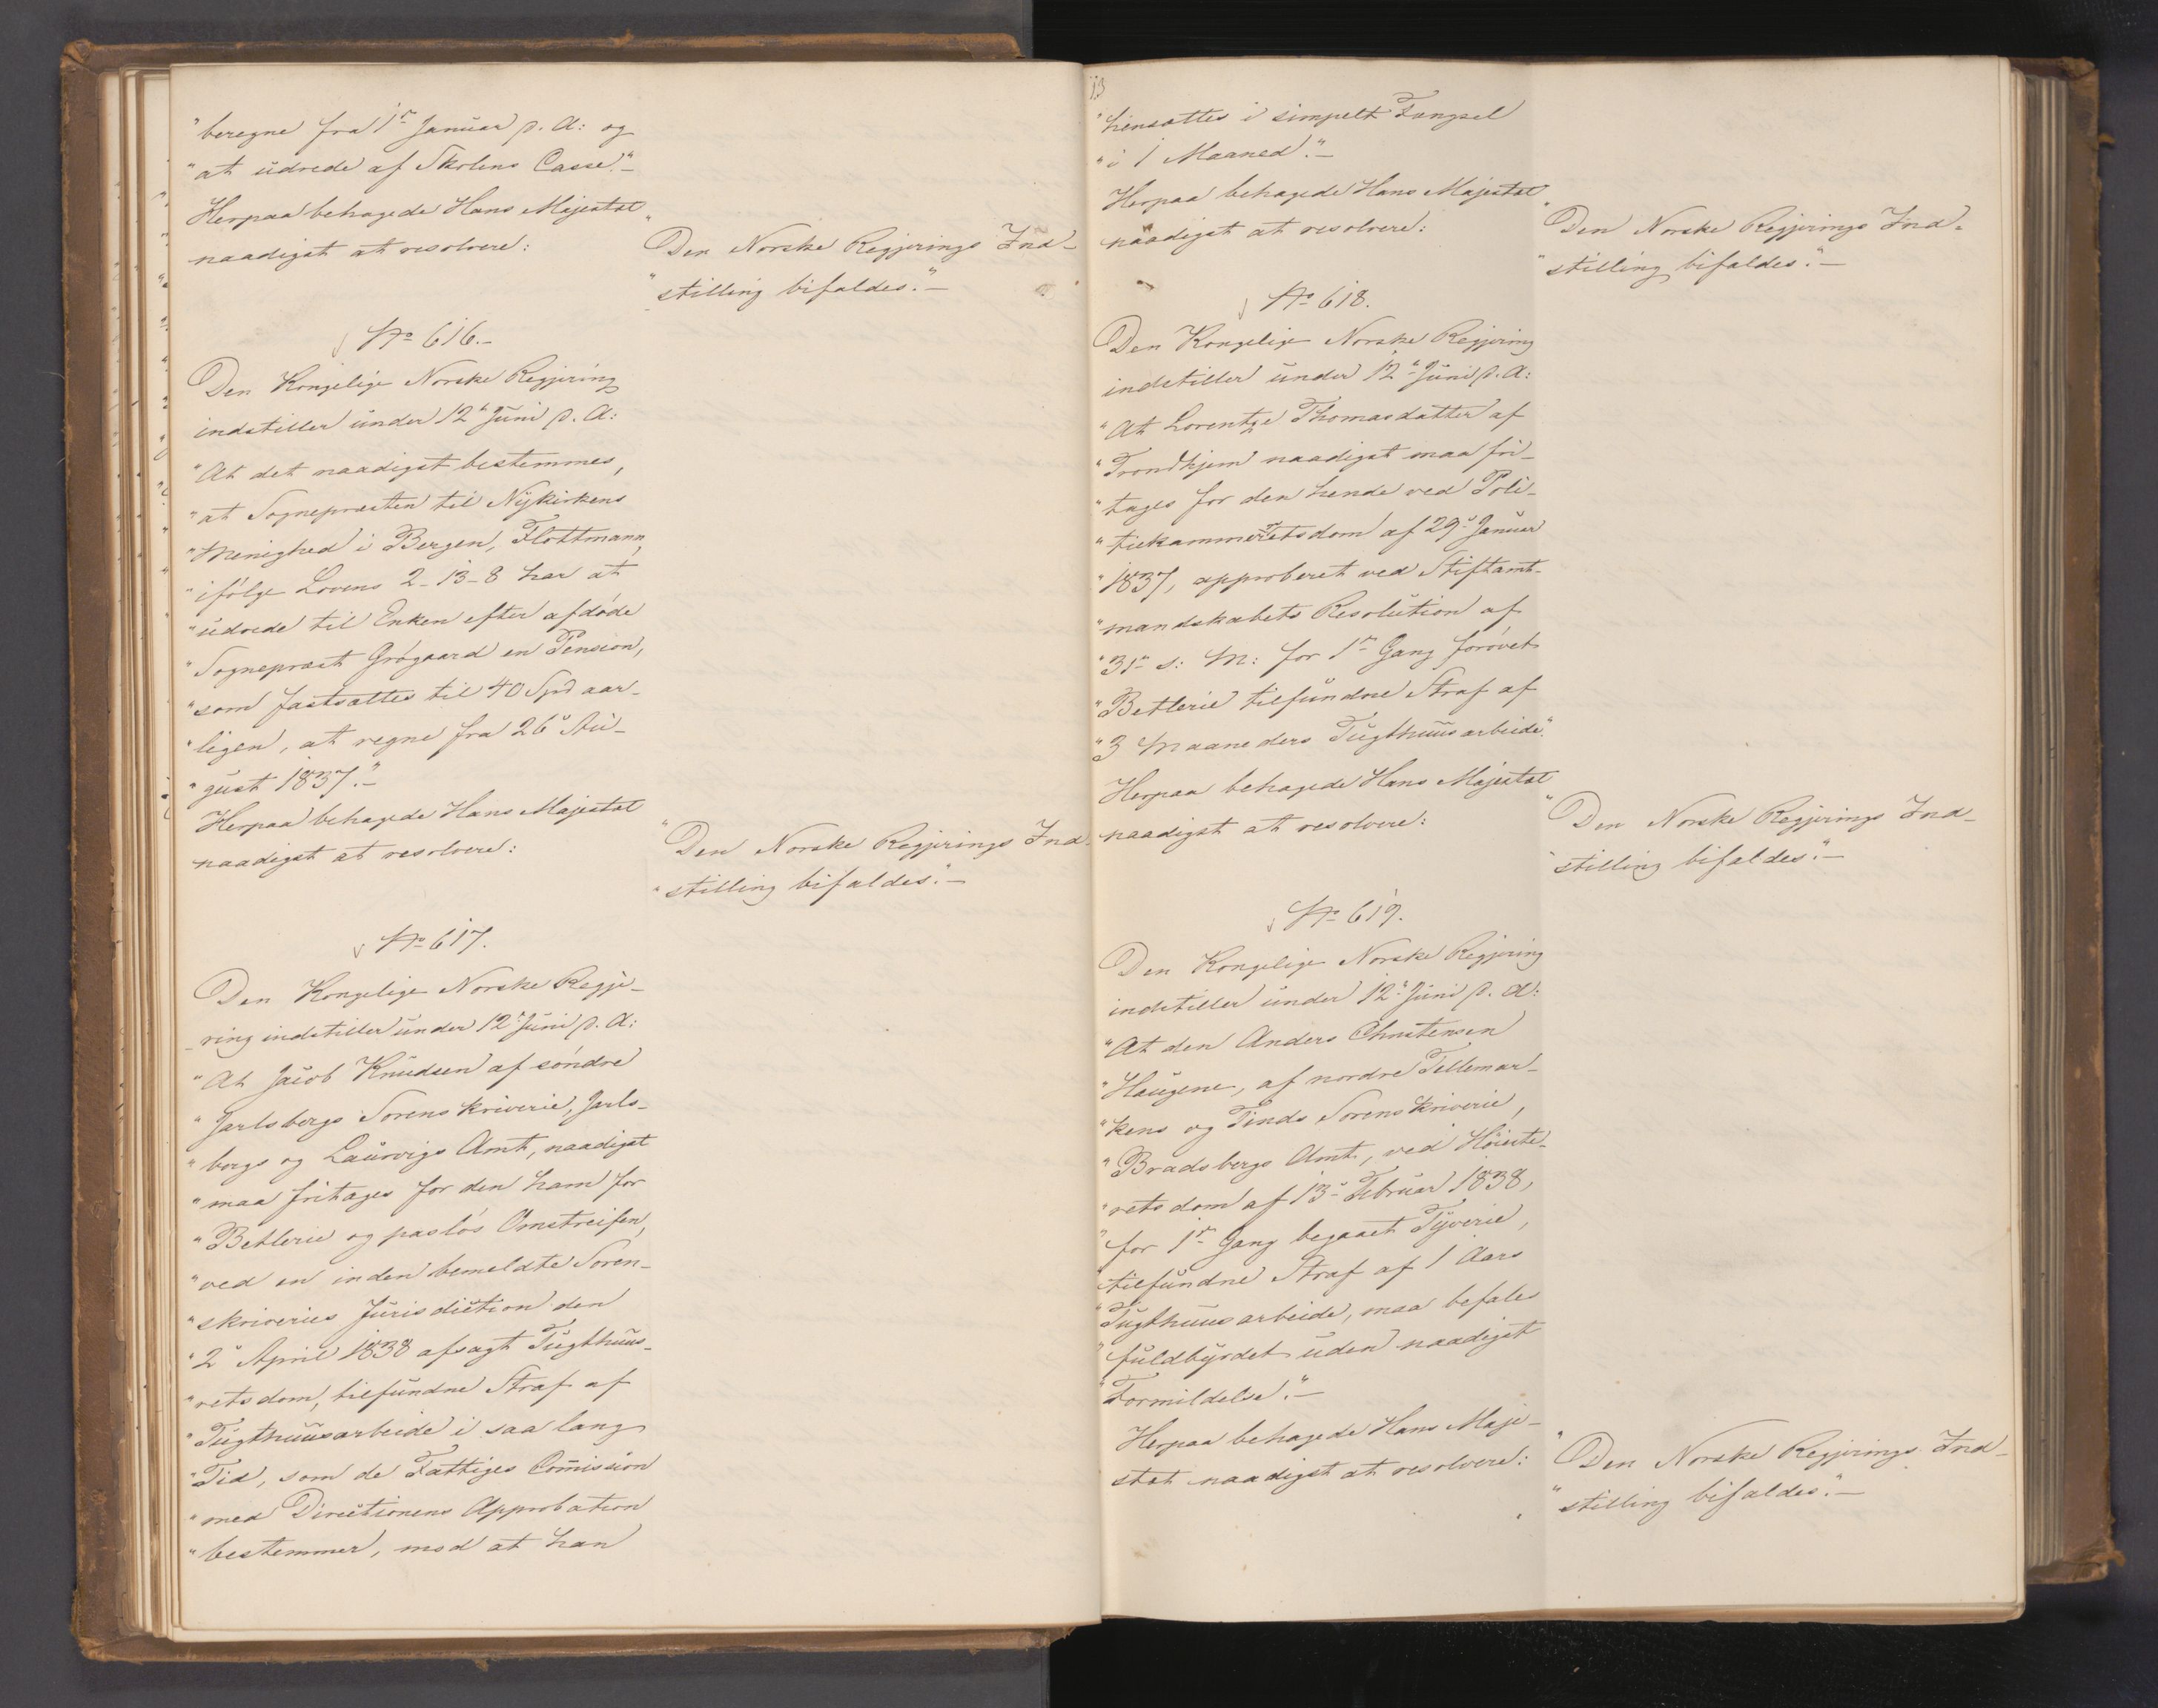 "beregne fra 1ste Januar d. A: og
"at udrede af Skolens Casse."-
Herpaa behagede Hans Majestæt
naadigst at resolvere:
"Den Norske Regjerings Ind-
"stilling bifaldes."-
No 616.-
Den Kongelige Norske Regjering
indstiller under 12te Juni d. A:
"At det naadigst bestemmes,
"at Sognepræsten til Nykirkens
"Menighed i Bergen, Flottmann,
"ifölge Lovens 2-13-8 har at
"udrede til Enken efter afdöde
"Sognepræst Grögaard en Pension,
"som fastsættes til 40 Spd aar-
"ligen, at regne fra 26de Au-
"gust 1837."-
Herpaa behagede Hans Majestæt
naadigst at resolvere:
"Den Norske Regjerings Ind-
"stilling bifaldes."-
No 617.
Den Kongelige Norske Regje-
ring indstiller under 12te Juni d. A:
"At Jacob Knudsen af söndre
"Jarlsbergs Sorenskriverie, Jarls-
"bergs og Laurvigs Amt, naadigst
"maa fritages for den ham for
"Betlerie og paslös Omstreifen,
"ved en inden bemeldte Soren-
"skriveries Jurisdiction den
"2den April 1838 afsagt Tugthuus-
"retsdom, tilfundne Straf af
"Tugthuusarbeide i saa lang
"Tid, som de Fattiges Com̄ission
"med Directionens Approbation
"bestemmer, mod at han
13
"hensættes i simpelt Fængsel
"i 1 Maaned."-
Herpaa behagede Hans Majestæt
naadigst at resolvere:
"Den Norske Regjerings Ind-
"stilling bifaldes."-
No 618.
Den Kongelige Norske Regjering
indstiller under 12te Juni d. A:
"At Lorentze Thomasdatter af
"Trondhjem naadigst maa fri-
"tages for den hende ved Poli-
"tiekammerretsdom af 29de Januar
"1837, approberet ved Stiftamt-
"mandskabets Resolution af
"31te s: M: for 1ste Gang forövet
"Betlerie tilfundne Straf af
"3 Maaneders Tugthuusarbeide."
Herpaa behagede Hans Majestæt
naadigst at resolvere:
"Den Norske Regjerings Ind-
"stilling bifaldes."-
No 619.
Den Kongelige Norske Regjering
indstiller under 12te Juni d. A:
"At den Anders Christensen
"Haugene, af nordre Tellemar-
"kens og Tinds Sorenskriverie,
"Bradsbergs Amt, ved Höieste-
"retsdom af 13de Februar 1838,
"for 1ste Gang begaaet Tyverie,
"tilfundne Straf af 1 Aars
"Tugthuusarbeide, maa befales
"fuldbyrdet uden naadigst
"Formildelse."-
Herpaa behagede Hans Maje-
stæt naadigst at resolvere:
"Den Norske Regjerings Ind-
"stilling bifaldes."-